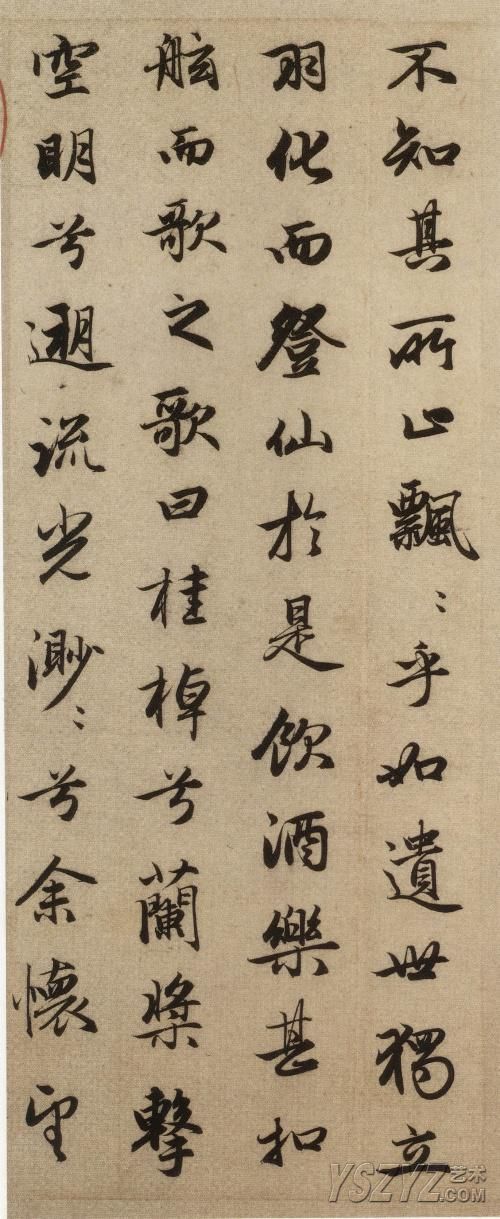 不知其所止飄〻乎如遺世獨立
羽化而登仙於是飲酒樂甚扣
舷而歌之歌曰桂棹兮蘭槳擊
空明兮遡流光渺〻兮余懷望
YSZYZ艺术
.COM